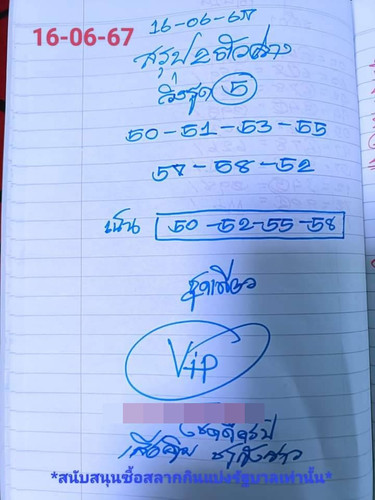 16-06-67
16-06-67
สรุป 2 ตัวล่าง
วิ่งรูด 5
50-51-53-55
57-58-52
เน้น 50-52-55-58
ชุดเดียว
Vip
*สนับสนุนซื้อสลากกินแบ่งรัฐบาลเท่านั้น*